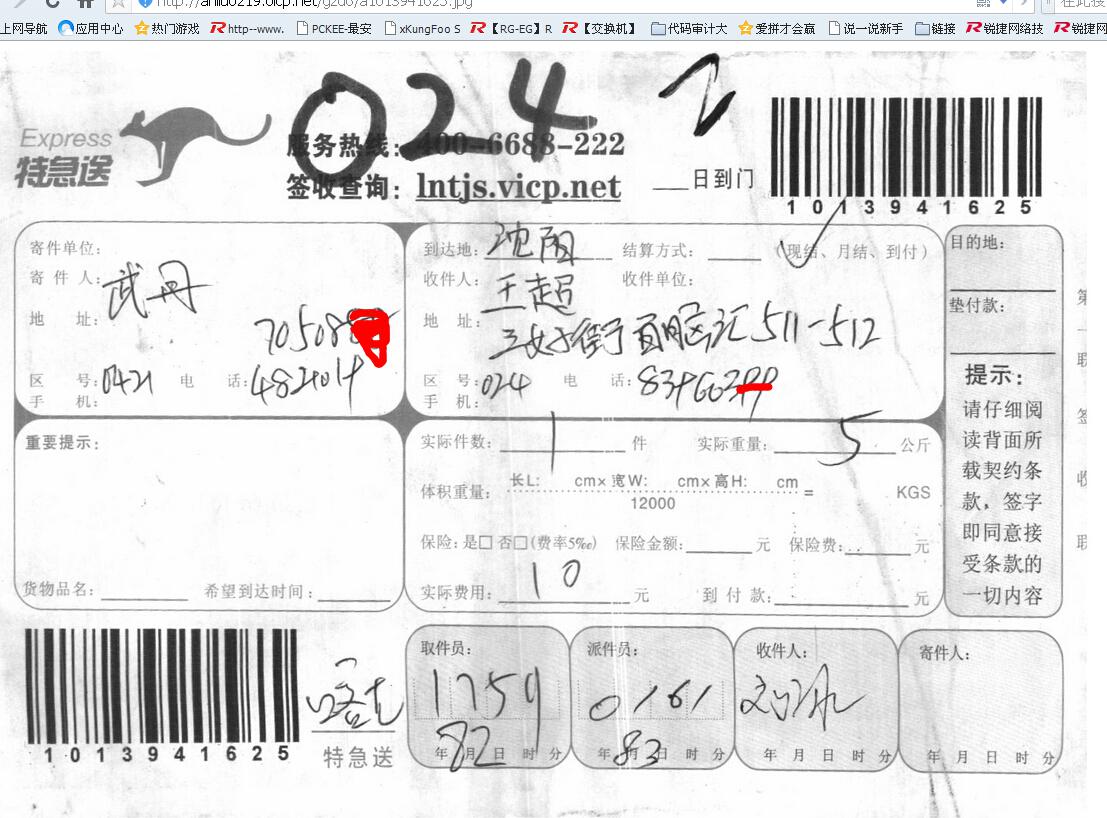 http://anlid0219.oicp.net/gzdd/a1013941625.jpg
上网导航 应用中心 热门游戏 http--www. PCKEE-最安 xKungFoo S 【RG-EG】R 【交换机】 代码审计大 爱拼才会赢 说一说新手 链接 锐捷网络技 锐捷网
024 2
Express
特急送
服务热线：400-6688-222
签收查询：lntjs.vicp.net
___日到门
1013941625
寄件单位：
寄 件 人：武丹
地 址：
区 号：0421 电 话：
手 机：
到达地：沈阳 结算方式：____ （现结、月结、到付）
收件人：王超 收件单位：
地 址：三好街百脑汇511-512
区 号：024 电 话：
手 机：
目的地：
垫付款：
提示：
请仔细阅
读背面所
载契约条
款，签字
即同意接
受条款的
一切内容
重要提示：
货物品名：____ 希望到达时间：____
实际件数：1 件 实际重量：5 公斤
体积重量：长L: cm×宽W: cm×高H: cm = KGS
12000
保险：是□ 否□(费率5‰) 保险金额：____元 保险费：____元
实际费用：10 元 到 付 款：____元
1013941625
特急送
取件员：
1759
年 月 日 时 分
82
派件员：
0161
年 月 日 时 分
83
收件人：
年 月 日 时 分
寄件人：
年 月 日 时 分